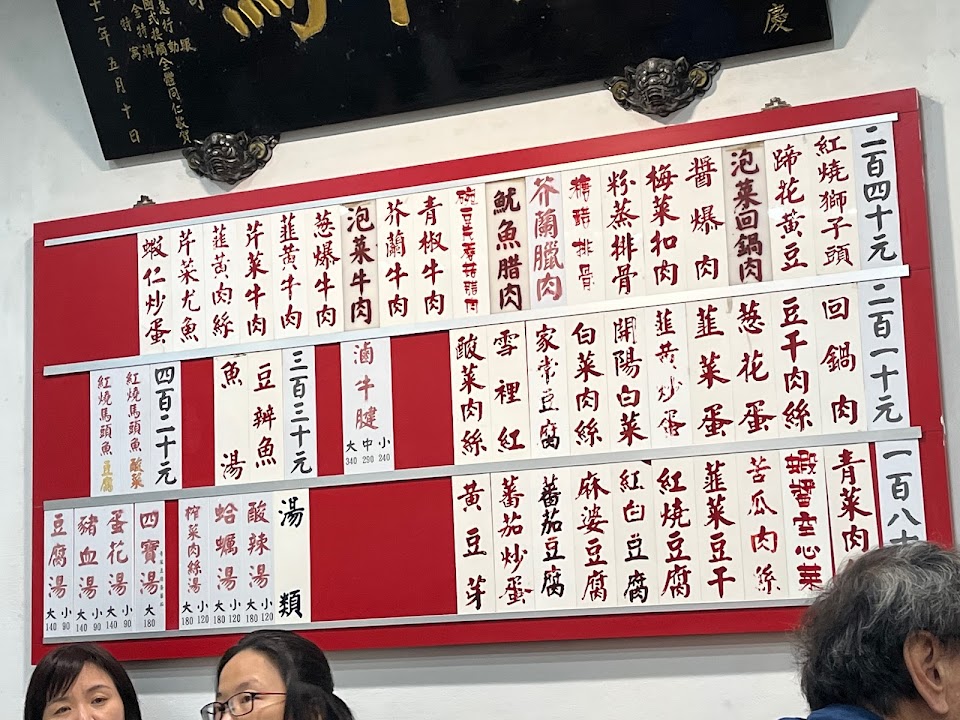 慶
全體同仁敬賀
十一年五月十日
二百四十元
紅燒獅子頭
蹄花黃豆
泡菜回鍋肉
醬爆肉
梅菜扣肉
粉蒸排骨
糖醋排骨
芥蘭臘肉
魷魚腊肉
青椒牛肉
芥蘭牛肉
泡菜牛肉
葱爆牛肉
韮黃牛肉
芹菜牛肉
韮黃肉絲
芹菜尤魚
蝦仁炒蛋
二百一十元
回鍋肉
豆干肉絲
葱花蛋
韮菜蛋
韮黃炒蛋
開陽白菜
白菜肉絲
家常豆腐
雪裡紅
酸菜肉絲
滷牛腱 大340 中290 小240
三百三十元
豆瓣魚
魚湯
四百二十元
紅燒馬頭魚 酸菜
紅燒馬頭魚 豆腐
一百八
青菜肉
蝦醬空心菜
苦瓜肉絲
韮菜豆干
紅燒豆腐
紅白豆腐
麻婆豆腐
蕃茄豆腐
蕃茄炒蛋
黃豆芽
湯類
酸辣湯 大180 小120
蛤蠣湯 大180 小120
榨菜肉絲湯 大180 小120
四寶湯 大180
蛋花湯 大140 小90
豬血湯 大140 小90
豆腐湯 大140 小90